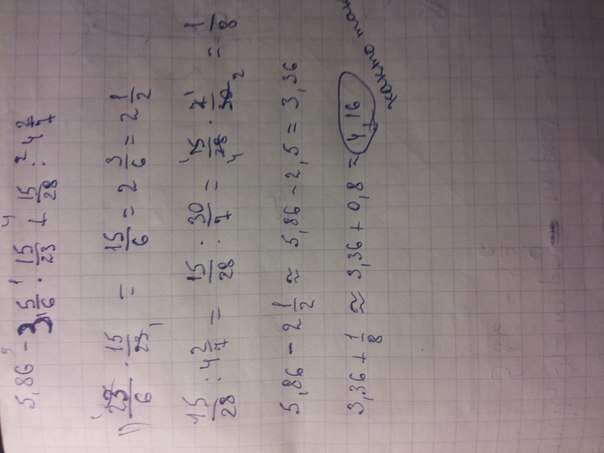 5,86 - 3 5/6 · 15/23 + 15/28 : 4 2/7
1) 23/6 · 15/23 = 15/6 = 2 3/6 = 2 1/2
15/28 : 4 2/7 = 15/28 : 30/7 = 15/28 · 7/30 = 1/8
5,86 - 2 1/2 ≈ 5,86 - 2,5 = 3,36
3,36 + 1/8 ≈ 3,36 + 0,8 = 4,16